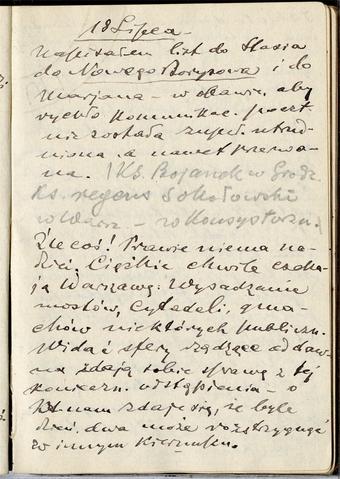 18 Lipca
Napisałem list do Stasia
do Nowego Borysowa i do
Marjana – w obawie, aby
rychło komunikac. poczt.
nie została zupeł. utrud-
niona a nawet przerwa-
na. (Ks. Bojanek w Grodz.
Ks. regens Sokołowski
w Warsz. – w Konsystorzu.)
Źle coś! Prawie niema na-
dziei. Ciężkie chwile czeka-
ją Warszawę: Wysadzanie
mostów, Cytadeli, gma-
chów niektórych publiczn.
Widać sfery rządzące od daw-
na zdają sobie sprawę z tej
konieczn. odstąpienia – a
nam zdaje się, że byle
dzień, dwa może rozstrzygnąć
w innym kierunku.